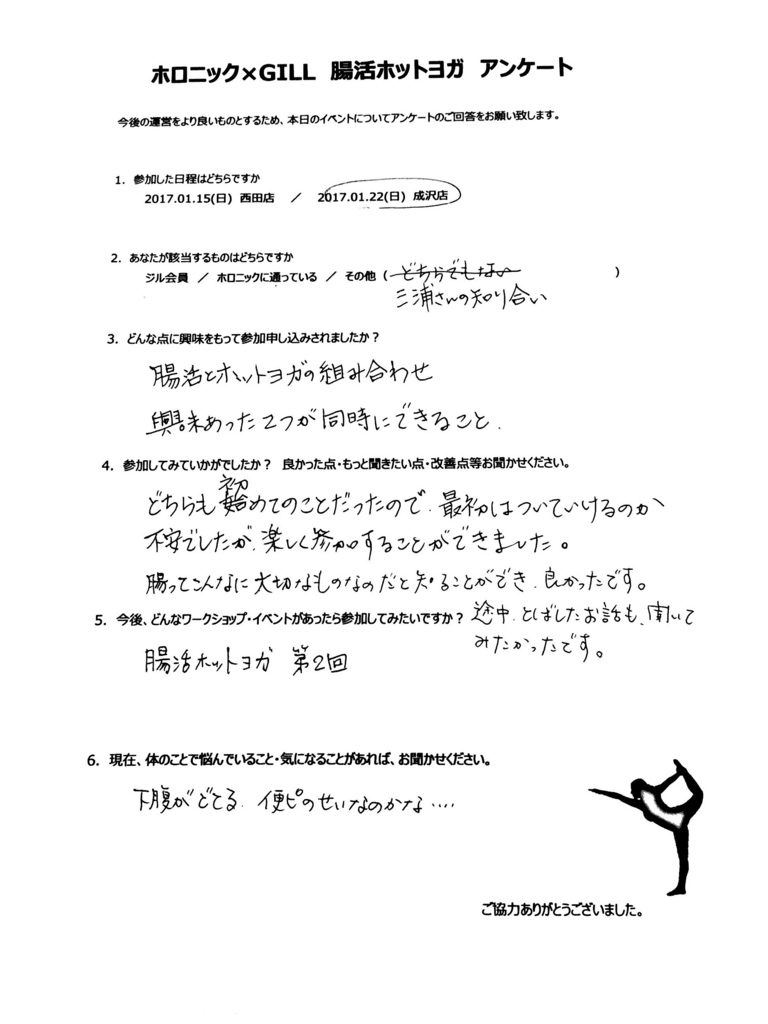 ホロニック×GILL 腸活ホットヨガ アンケート
今後の運営をより良いものとするため、本日のイベントについてアンケートのご回答をお願い致します。
1. 参加した日程はどちらですか
2017.01.15(日) 西田店 ／ 2017.01.22(日) 成沢店
2. あなたが該当するものはどちらですか
ジル会員 ／ ホロニックに通っている ／ その他 ( どちらでもない )
三浦さんの知り合い
3. どんな点に興味をもって参加申し込みされましたか？
腸活とホットヨガの組み合わせ
興味あった2つが同時にできること.
4. 参加してみていかがでしたか？ 良かった点・もっと聞きたい点・改善点等お聞かせください。
初
どちらも始めてのことだったので、最初はついていけるのか
不安でしたが、楽しく参加することができました。
腸ってこんなに大切なものなのだと知ることができ、良かったです。
途中、とばしたお話も、聞いて
みたかったです。
5. 今後、どんなワークショップ・イベントがあったら参加してみたいですか？
腸活ホットヨガ 第2回
6. 現在、体のことで悩んでいること・気になることがあれば、お聞かせください。
下腹がでてる. 便ピのせいなのかな....
ご協力ありがとうございました。